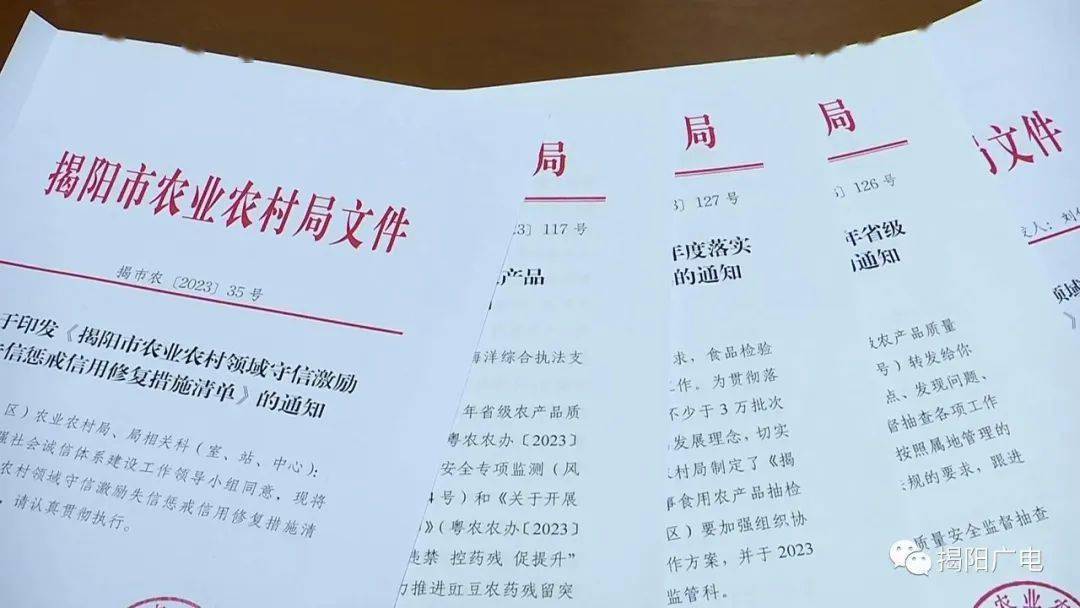 揭阳市农业农村局文件
揭市农〔2023〕35号
于印发《揭阳市农业农村领域守信激励
失信惩戒信用修复措施清单》的通知
区）农业农村局、局相关科（室、站、中心）：
强社会诚信体系建设工作领导小组同意，现将
农村领域守信激励失信惩戒信用修复措施清
，请认真贯彻执行。
局
3〕117号
产品
海洋综合执法支
年省级农产品质
粤农农办〔2023〕
安全专项监测（风
4号）和《关于开展
》（粤农农办〔2023〕
违禁 控药残 促提升”
力推进豇豆农药残留突
局
3〕127号
年度落实
的通知
求，食品检验
工作。为贯彻落
不少于3万批次
发展理念，切实
村局制定了《揭
事食用农产品抽检
区）要加强组织协
作方案，并于2023
监管科。
局
〕126号
年省级
通知
农产品质量
号）转发给你
点、发现问题、
督抽查各项工作
按照属地管理的
规的要求，跟进
质量安全监督抽查
文件
文人：刘
领域
》
农业农
揭阳广电